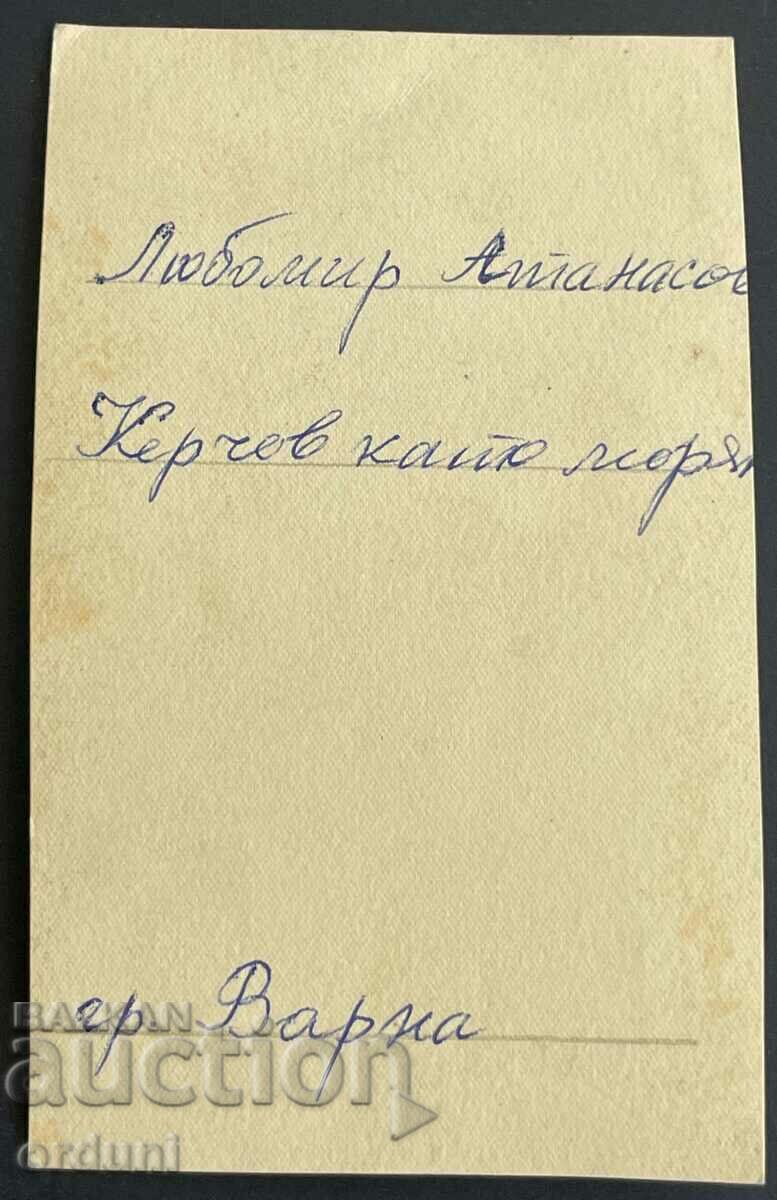 Любомир Атанасов
Керчов като моряк
гр. Варна
BALKAN
auction
orduni